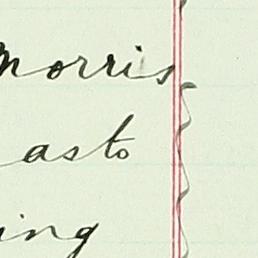 Morris
as to
ing